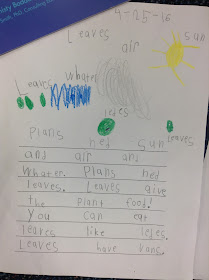 isty Bodein
Smith, PhD, Consulting
4-25-16
Leaves
sun
air
Leaves Whater
leaves
Plans ned sun
and air and
Whater. Plans ned
leaves. Leaves give
the plant food!
You can eat
leaves like
Leaves have vans.